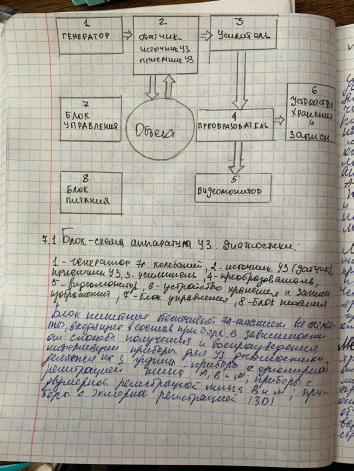 1
ГЕНЕРАТОР
2
Датчик
источник УЗ
приемник УЗ
3
Усилитель
7
БЛОК
УПРАВЛЕНИЯ
Объект
4
ПРЕОБРАЗОВАТЕЛЬ
6
Устройство
Хранения
и
Записи
8
БЛОК
ПИТАНИЯ
5
Видеомонитор
7.1 Блок-схема аппаратуры УЗ. диагностики.
1 - генератор эл. колебаний, 2 - источник УЗ (датчик),
приемник УЗ, 3 - усилитель, 4 - преобразователь,
5 - видеомонитор, 6 - устройство хранения и записи
изображений, 7 - блок управления, 8 - блок питания
Блок питания эл.
входящие в состав прибора в зависимости
от способа получения и воспроизведения
информации приборы для УЗ диагностики
на 3 группы - приборы с одномерной
регистрацией типа A, B и M, приборы с
двумерной регистрацией типа B и M, при-
боры с регистрацией (3D)